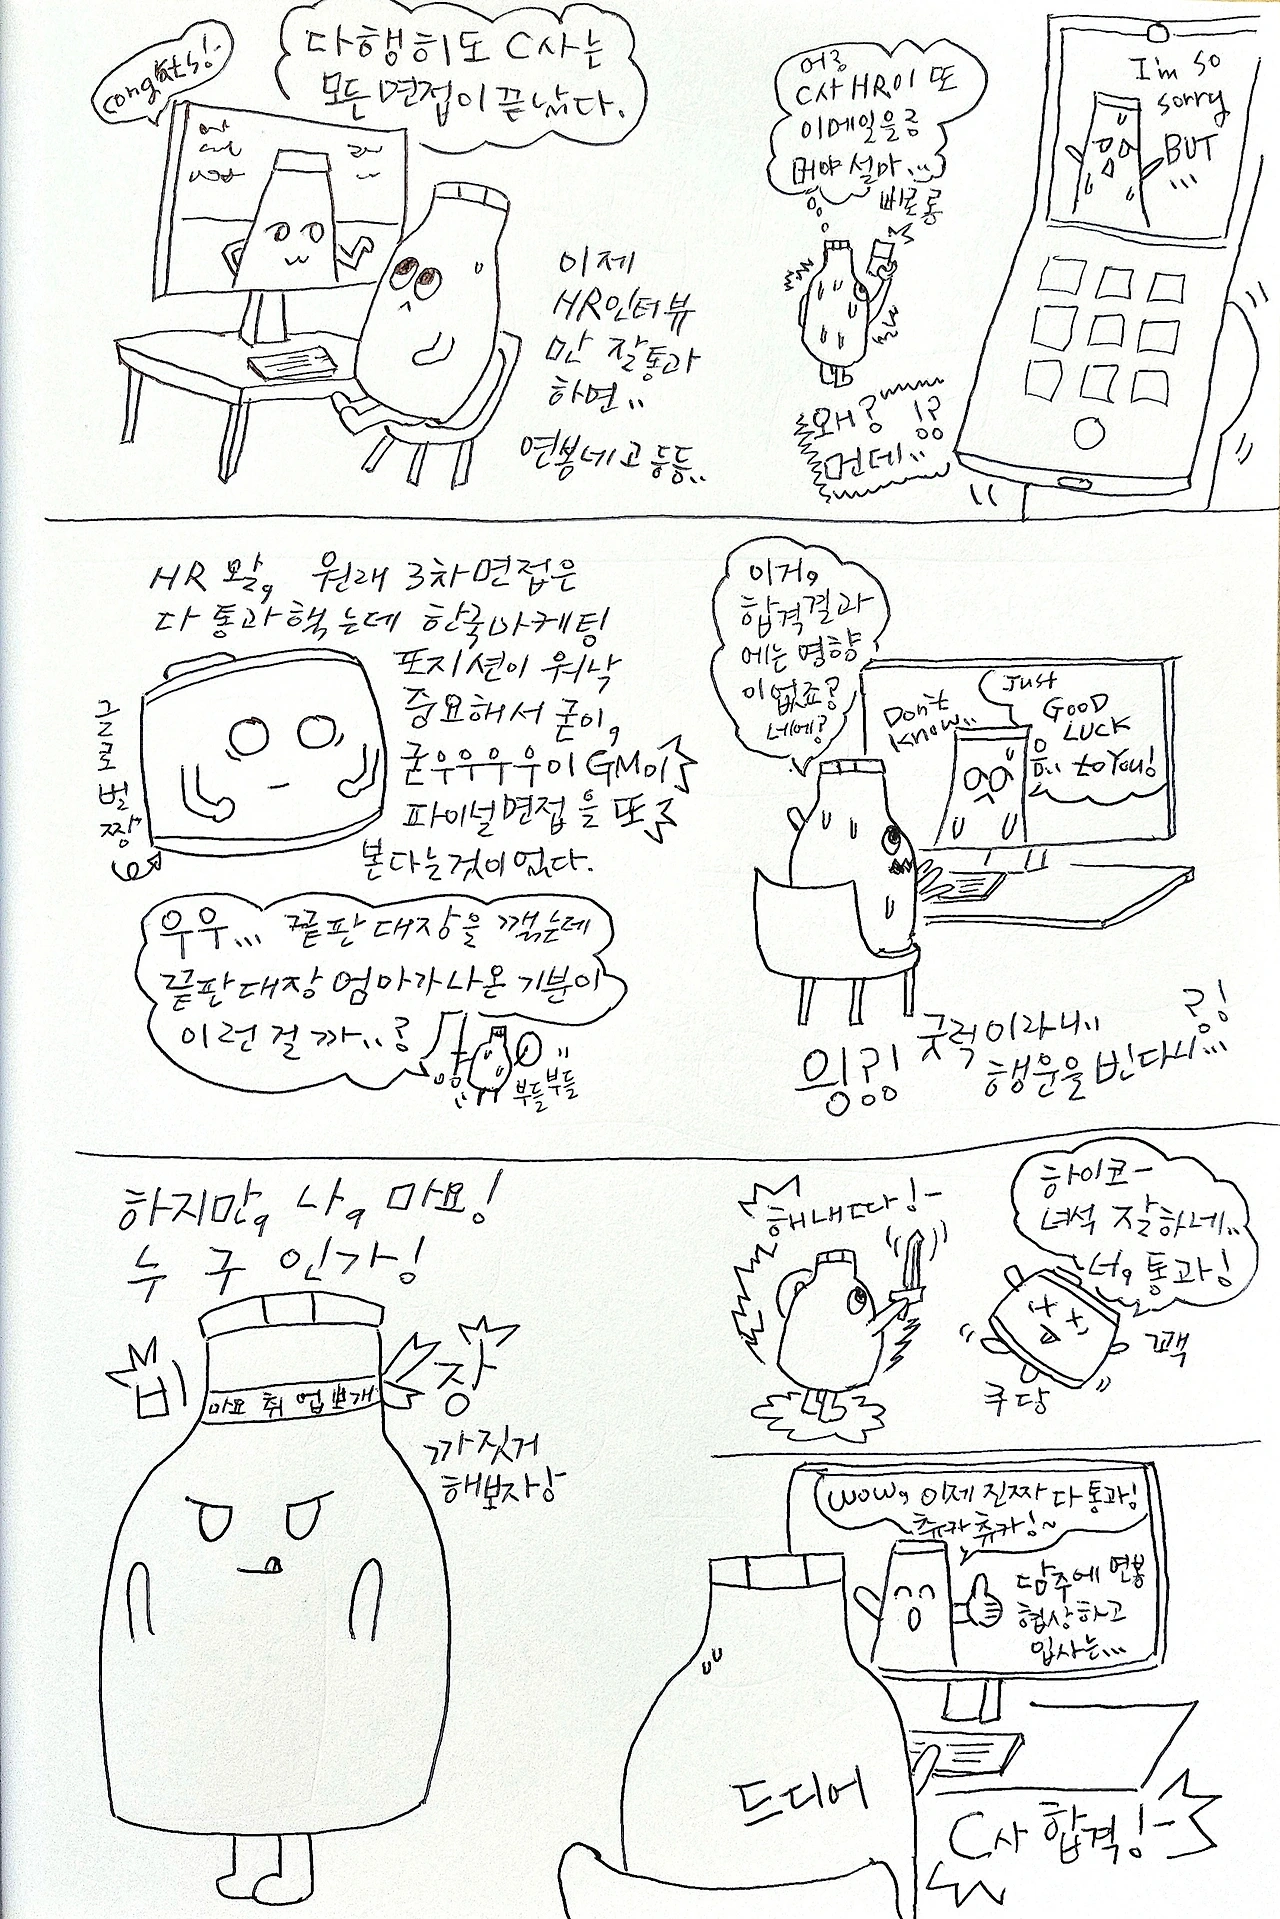 다행히도 C사는
모든 면접이 끝났다.
이제
HR인터뷰
만 잘통과
하면..
연봉네고 등등..
어룽
C사 HR이 또
이메일을 콩
머야 설마...
삐로롱
I'm so
sorry
BUT
...
왜? !?
먼데..
HR 왈, 원래 3차면접은
다 통과했는데 한국마케팅
포지션이 워낙
중요해서 굳이,
굳우우우우이 GM이
파이널면접을 또
본다는것이었다.
글로벌짱
우우... 끝판대장을 깼는데
끝판대장 엄마가 나온 기분이
이런걸까..?
부들부들
이거,
합격결과
에는 영향
이 없죠?
네에?
Don't
know..
Just
GOOD
LUCK
to You!
음..
굿럭이라니.. ?!
잉?! 행운을 빈다시...
하지만, 나, 마요!
누구인가!
비장
마요 취업뽀개
까짓거
해보자앙
해내따!-
하이코-
녀석 잘하네..
너, 통과!
꽥
쿠당
WOW, 이제 진짜 다 통과!
츄카츄카!~
담주에 연봉
협상하고
입사는...
드디어
C사 합격!-